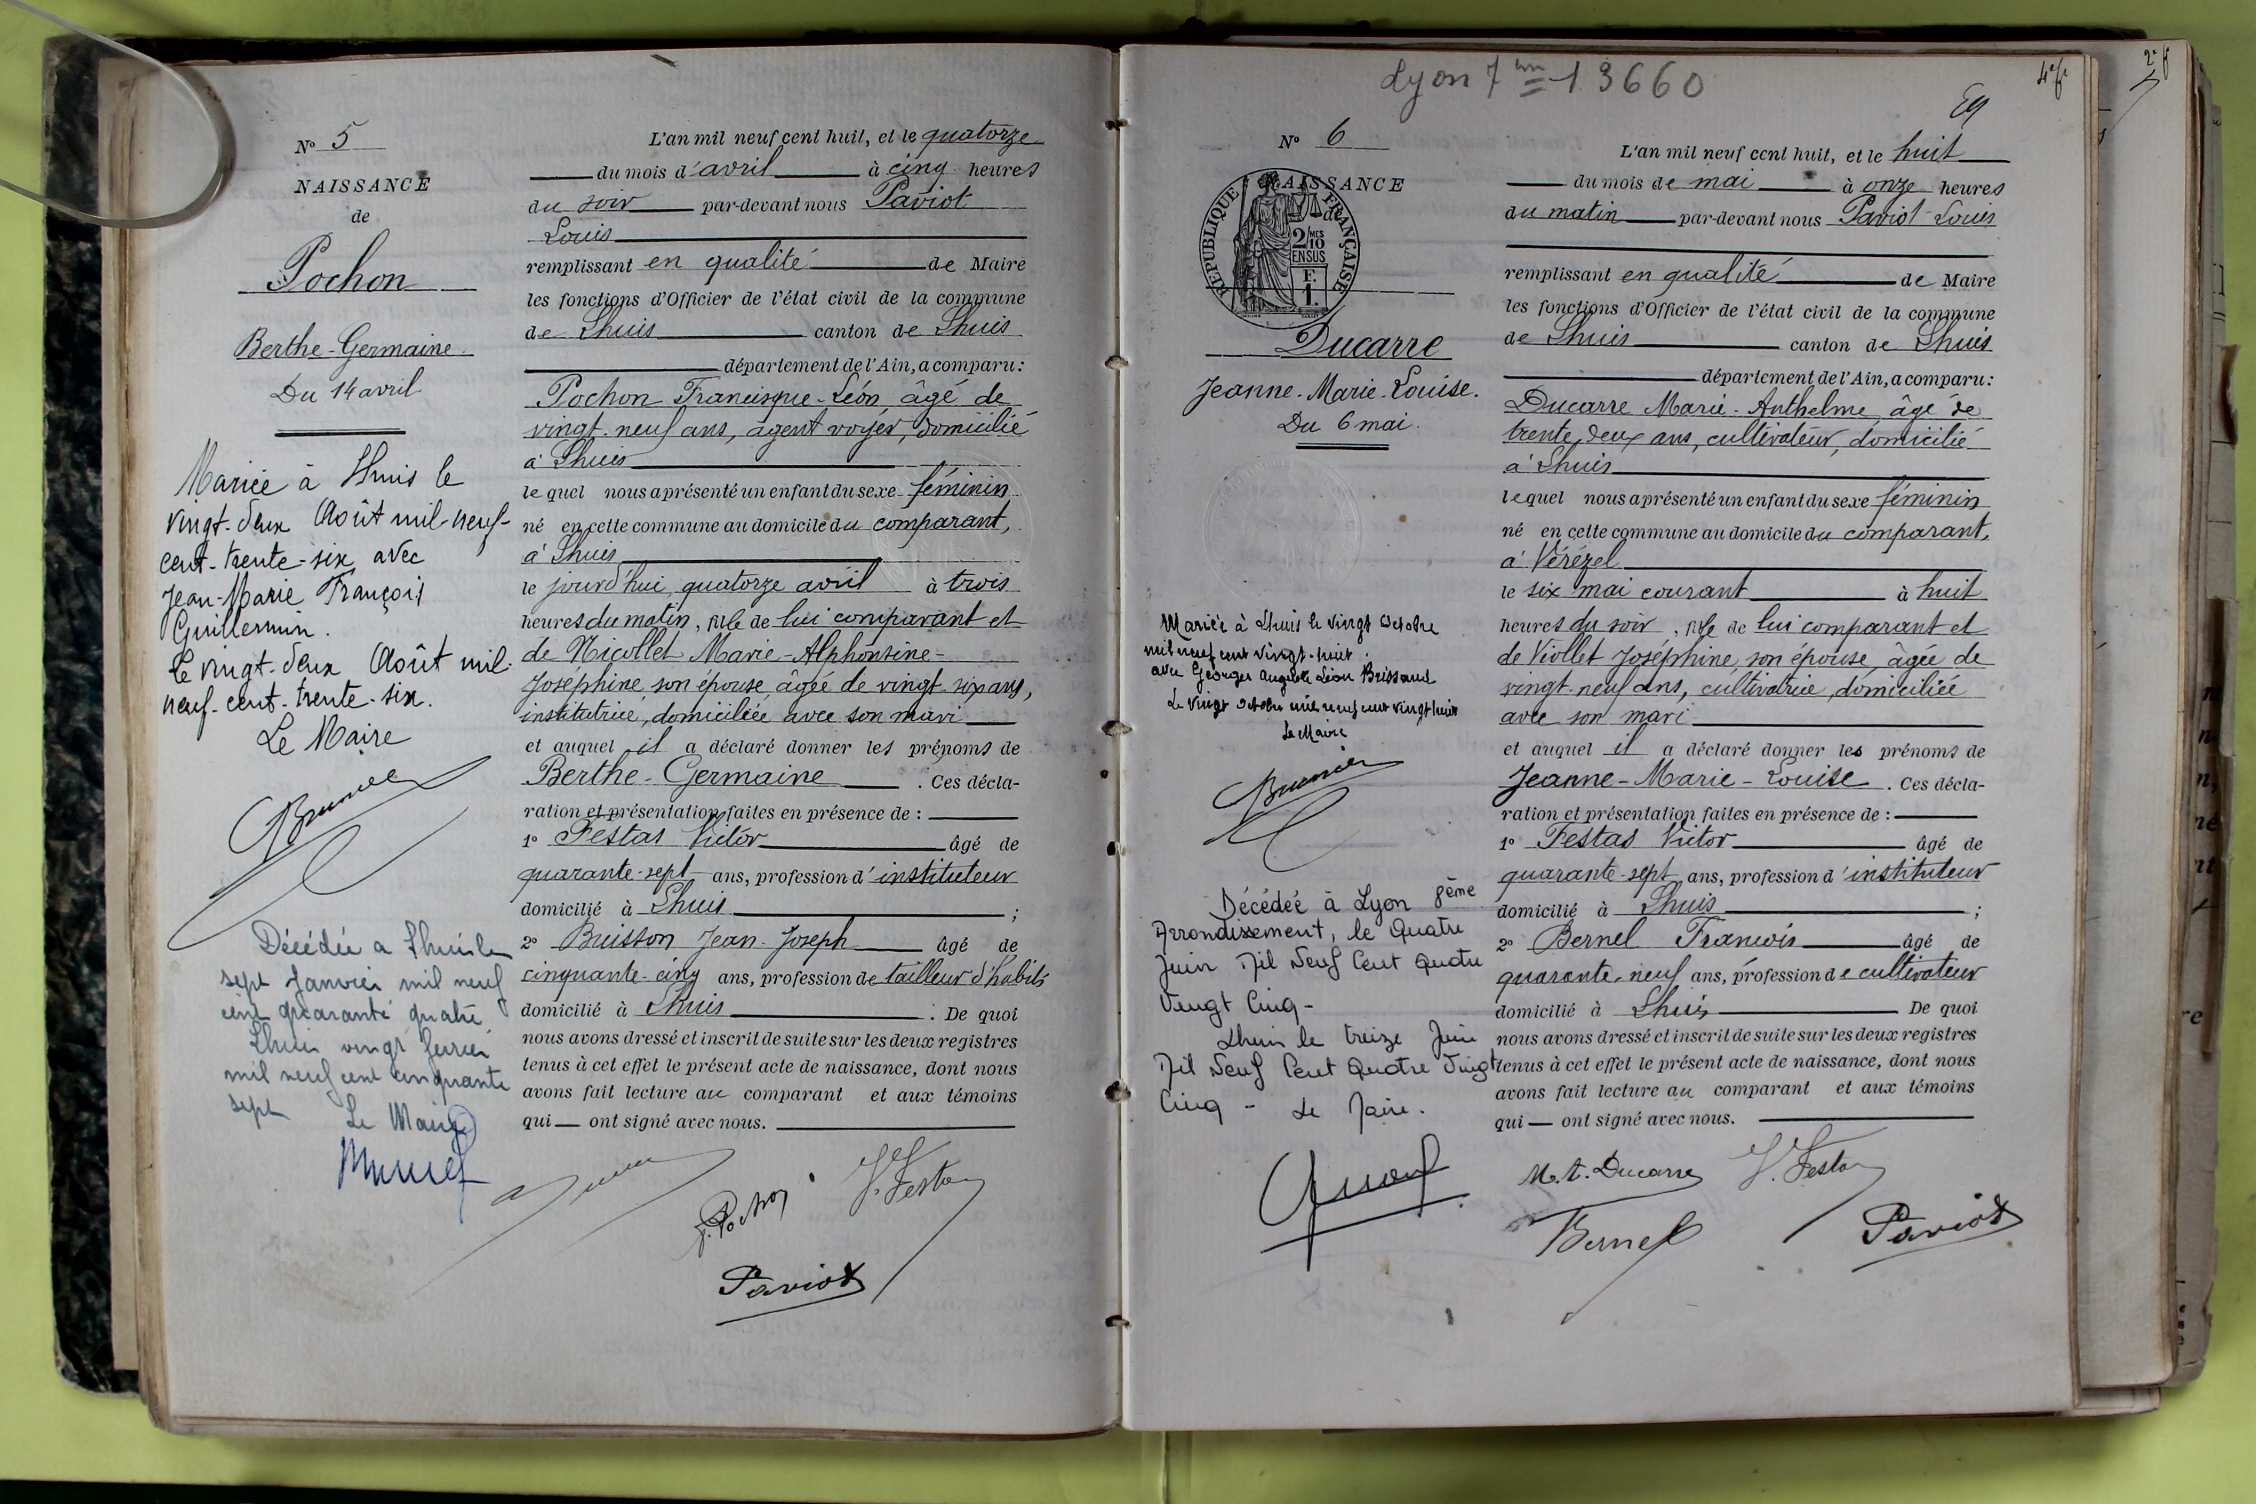 N° 5
NAISSANCE
de
Pochon
Berthe-Germaine
Du 14 avril
Mariée à Lhuis le
vingt-deux Août mil-neuf-
cent-trente-six avec
Jean-Marie François
Guillermin.
Le vingt-deux Août mil-
neuf-cent-trente-six.
Le Maire
Décédée a Lhuis le
sept Janvier mil neuf
cent quarante quatre
Lhuis vingt fevrier
mil neuf cent cinquante
sept Le Maire
L'an mil neuf cent huit, et le quatorze
du mois d'avril à cinq heures
du soir par-devant nous Paviot
Louis
remplissant en qualité de Maire
les fonctions d'Officier de l'état civil de la commune
de Lhuis canton de Lhuis
département de l'Ain, a comparu:
Pochon Francisque-Léon, âgé de
vingt-neuf ans, agent voyer, domicilié
à Lhuis
lequel nous a présenté un enfant du sexe féminin
né en cette commune au domicile du comparant,
à Lhuis
le jourd'hui, quatorze avril à trois
heures du matin, fille de lui comparant et
de Nicollet Marie-Alphonsine-
Joséphine, son épouse, âgée de vingt-six ans,
institutrice, domiciliée avec son mari
et auquel il a déclaré donner les prénoms de
Berthe-Germaine . Ces décla-
ration et présentation faites en présence de :
1° Festas Victor âgé de
quarante-sept ans, profession d'instituteur
domicilié à Lhuis ;
2° Buisson Jean-Joseph âgé de
cinquante-cinq ans, profession de tailleur d'habits
domicilié à Lhuis . De quoi
nous avons dressé et inscrit de suite sur les deux registres
tenus à cet effet le présent acte de naissance, dont nous
avons fait lecture au comparant et aux témoins
qui — ont signé avec nous.
F. Pochon V. Festas
Paviot
Lyon 7 13660
4e f
2e f
N° 6
NAISSANCE
de
RÉPUBLIQUE FRANÇAISE
2/10 MES
EN SUS
F.
1.
Ducarre
Jeanne-Marie-Louise.
Du 6 mai.
Mariée à Lhuis le vingt Octobre
mil neuf cent vingt-huit.
avec Georges Auguste Léon Brissaud
Le vingt Octobre mil neuf cent vingt huit
Le Maire
Décédée à Lyon 8ème
Arrondissement, le Quatre
Juin Mil Neuf Cent Quatre
Vingt Cinq -
Lhuis le treize Juin
Mil Neuf Cent Quatre Vingt
Cinq - Le Maire.
L'an mil neuf cent huit, et le huit
du mois de mai à onze heures
du matin par-devant nous Paviot Louis
remplissant en qualité de Maire
les fonctions d'Officier de l'état civil de la commune
de Lhuis canton de Lhuis
département de l'Ain, a comparu:
Ducarre Marie-Anthelme, âgé de
trente-deux ans, cultivateur, domicilié
à Lhuis
lequel nous a présenté un enfant du sexe féminin
né en cette commune au domicile du comparant,
à Vérézel
le six mai courant à huit
heures du soir, fille de lui comparant et
de Viollet Joséphine, son épouse, âgée de
vingt-neuf ans, cultivatrice, domiciliée
avec son mari
et auquel il a déclaré donner les prénoms de
Jeanne-Marie-Louise . Ces décla-
ration et présentation faites en présence de :
1° Festas Victor âgé de
quarante-sept ans, profession d'instituteur
domicilié à Lhuis ;
2° Bernel Francois âgé de
quarante-neuf ans, profession de cultivateur
domicilié à Lhuis De quoi
nous avons dressé et inscrit de suite sur les deux registres
tenus à cet effet le présent acte de naissance, dont nous
avons fait lecture au comparant et aux témoins
qui — ont signé avec nous.
M. A. Ducarre V. Festas
Bernel Paviot